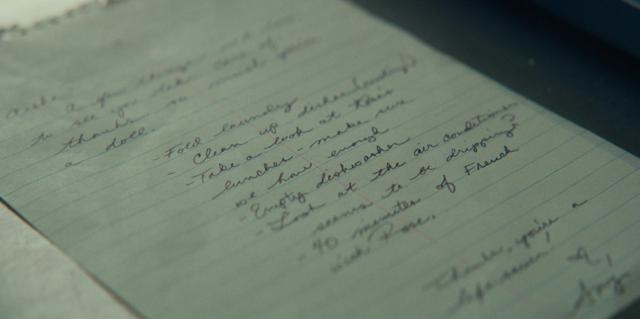 Aisha
A few things
to see you take care of
thanks so much you're
a doll.
- Fold laundry
- Clean up dishes
- Take a look at Rose's
lunches - make sure
we have enough
- Empty dishwasher
- Look at the air conditioner
seems to be dripping?
- 40 minutes of French
with Rose.
Thanks, you're a
life saver!